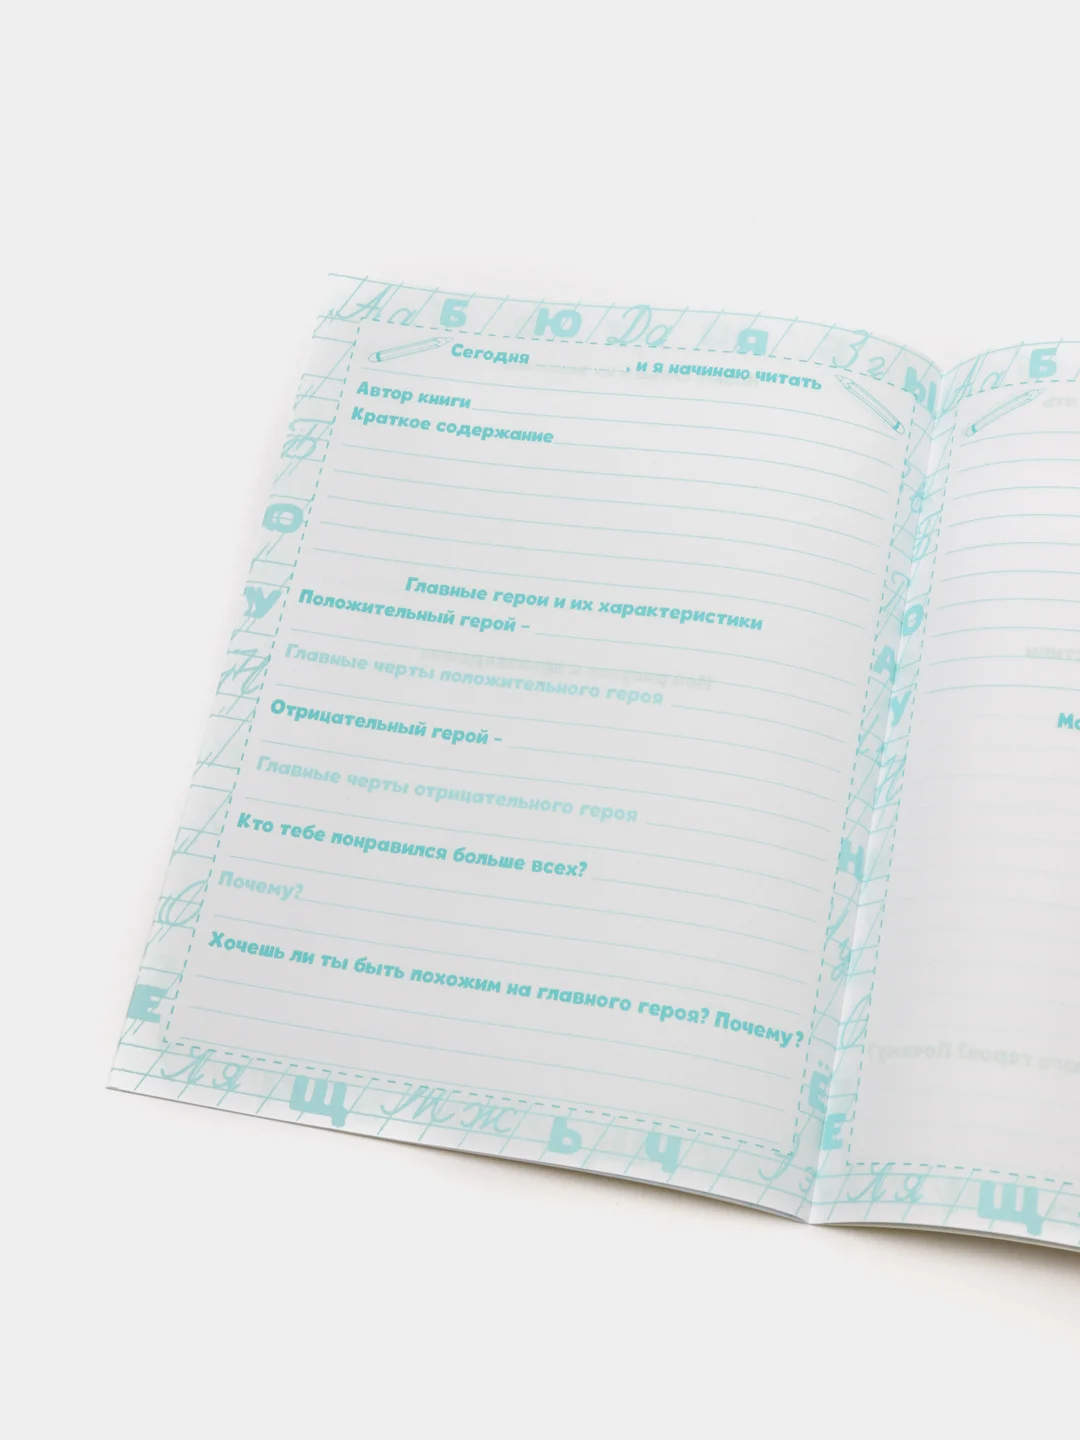 Аа Б Ю Дд Я Зг Ы
Сегодня ______, и я начинаю читать
Автор книги
Краткое содержание
Главные герои и их характеристики
Положительный герой –
Главные черты положительного героя
Отрицательный герой –
Главные черты отрицательного героя
Кто тебе понравился больше всех?
Почему?
Хочешь ли ты быть похожим на главного героя? Почему?
Ф
У
Е
А
У
Н
Ё
Е
Яя Щ Жж Ь Ч
Аа Б
Мо
Яя Щ